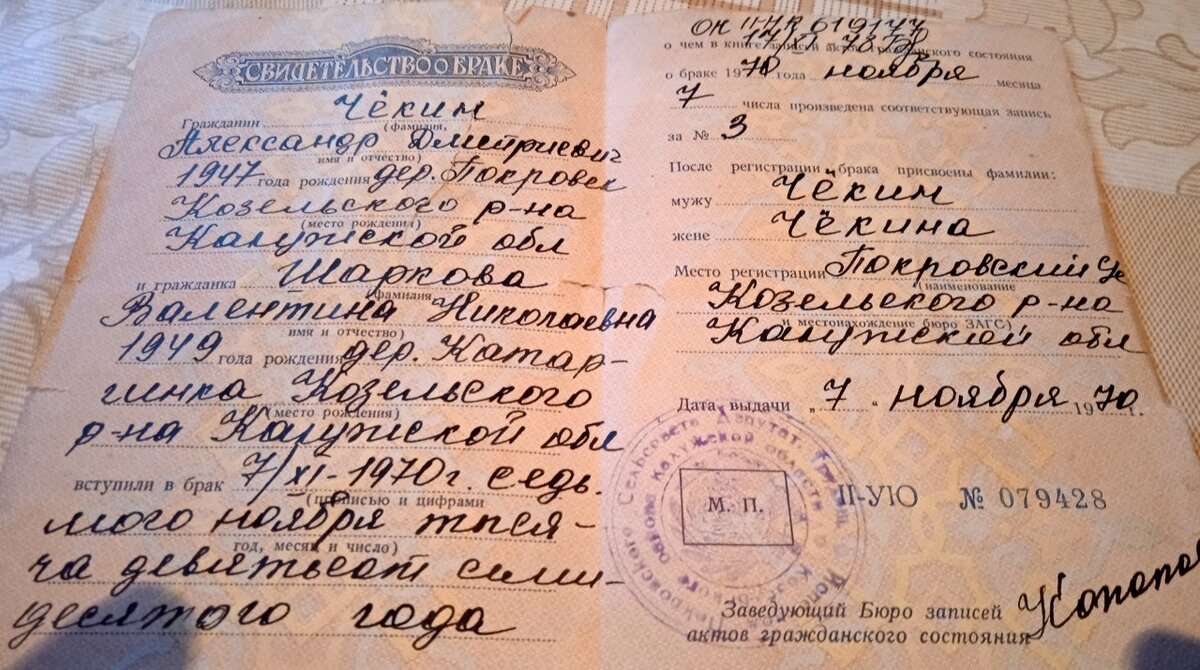 СВИДЕТЕЛЬСТВО О БРАКЕ
Гражданин Чёкин
(фамилия,
Александр Дмитриевич
имя и отчество)
1947 года рождения дер. Покровск
Козельского р-на
(место рождения)
Калужской обл
и гражданка Шаркова
(фамилия
Валентина Николаевна
имя и отчество)
1949 года рождения дер. Катар-
гинка Козельского
(место рождения)
р-на Калужской обл
вступили в брак 7/XI-1970г. седь-
(прописью и цифрами
мого ноября тыся-
год, месяц и число)
ча девятьсот семи-
десятого года
17/XI
о чем в книге записей актов гражданского состояния
о браке 1970 года ноября месяца
7 числа произведена соответствующая запись
за № 3
После регистрации брака присвоены фамилии:
мужу Чёкин
жене Чёкина
Место регистрации Покровский
(наименование
Козельского р-на
и местонахождение бюро ЗАГС)
Калужской обл
Дата выдачи „7" ноября 1970 г.
М. П.
II-УЮ № 079428
Заведующий Бюро записей
актов гражданского состояния